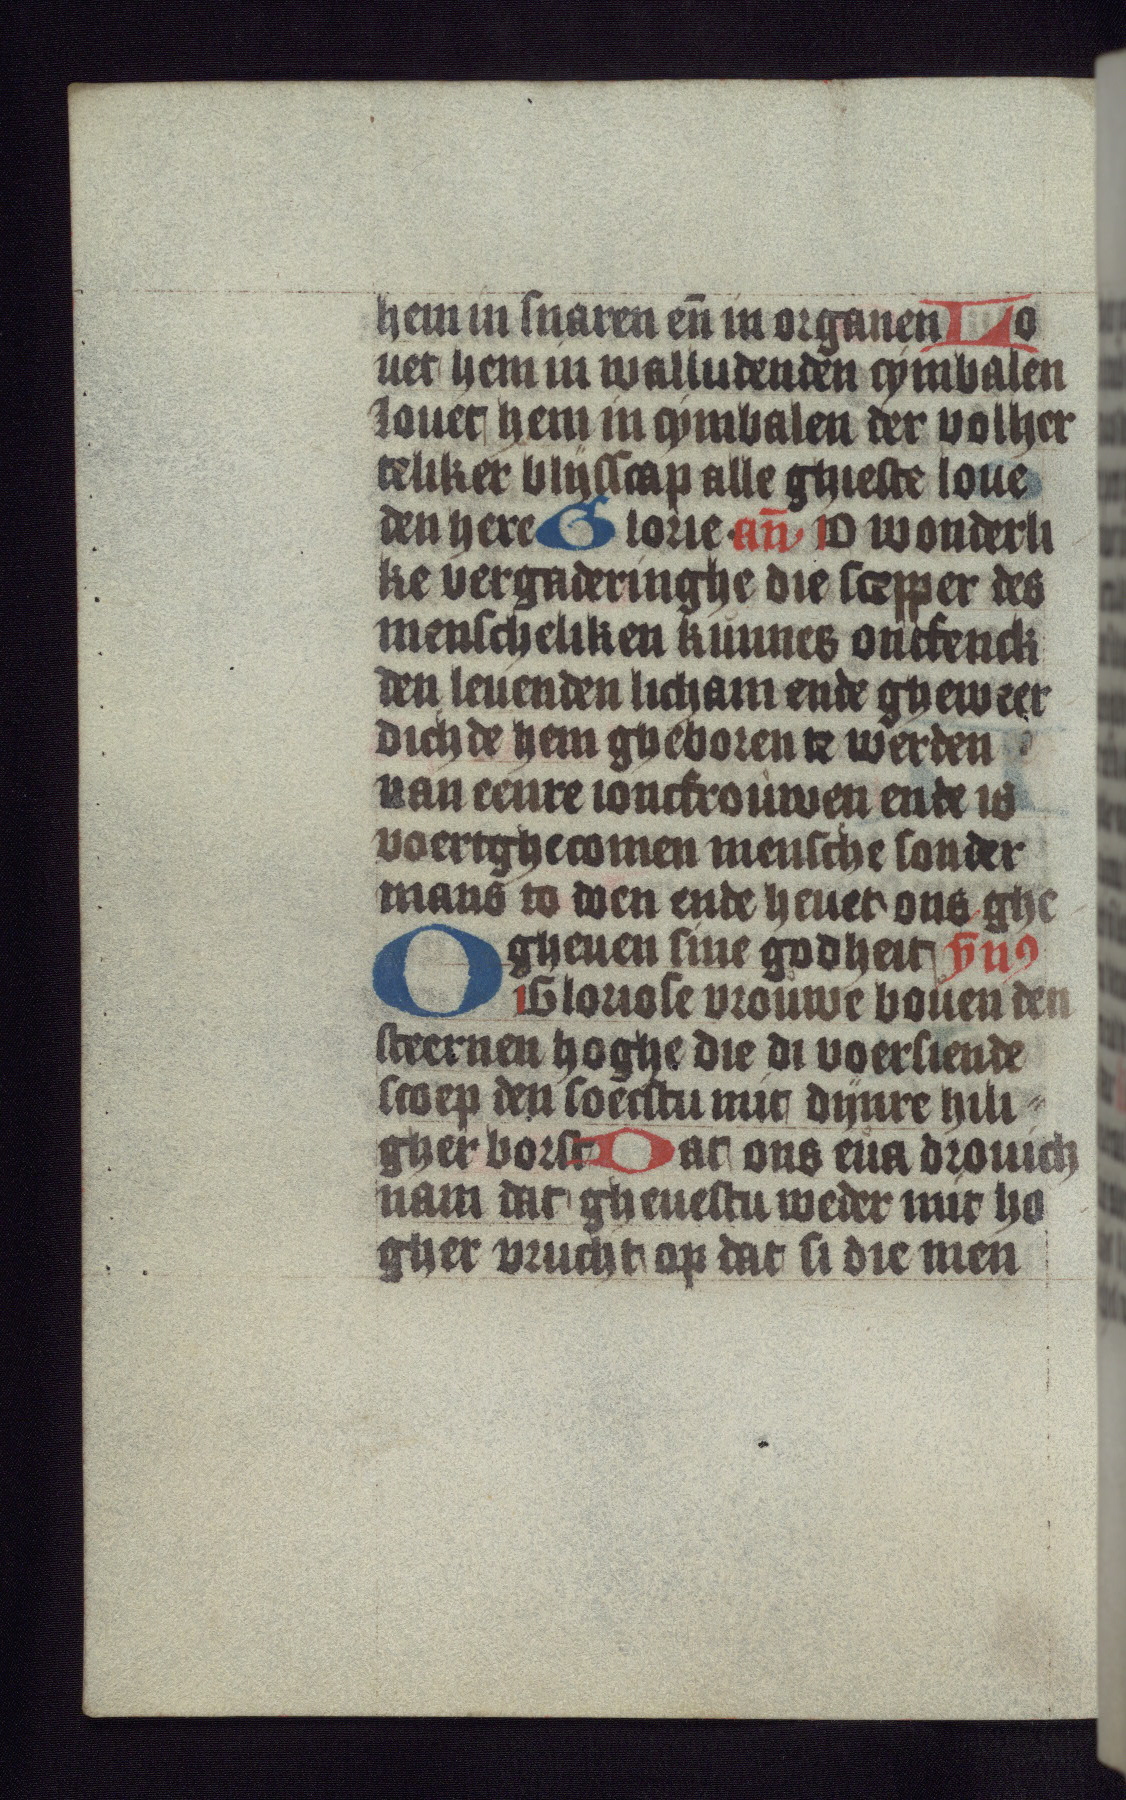 hem in snaren en̄ in organen Lo
uet hem in walludenden cymbalen
louet hem in cymbalen der volher
teliker blijsscap alle ghieste loue
den here Glorie an̄ O wonderli
ke vergaderinghe die scepper des
menscheliken kunnes ontfenck
den leuenden licham ende gheweer
dichde hem gheboren te werden
van eenre ioncfrouwen ende is
voertghecomen mensche sonder
mans to doen ende heuet ons ghe
gheuen sine godheit ȳn9
O Gloriose vrouwe bouen den
steernen hoghe die di voersiende
scoep den soechstu mit dijnre hili
gher borst Dat ons eua drouich
nam dat gheuestu weder mit ho
gher vrucht op dat si die men